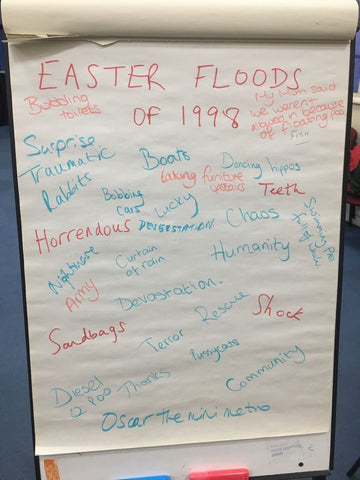 EASTER FLOODS
OF 1998
Bubbling
toilets
My Mum said
we weren't
allowed in because
of floating poo
Fish
Surprise
Traumatic
Rabbits
Boats
Dancing hippos
taking furniture
upstairs
Teeth
Bobbing
cars
Lucky
DEVERSTATION
Chaos
Swimming Pool
full of
Horrendous
Nightmare
Curtain
of rain
Humanity
Army
Devastation.
Rescue
Shock
Sandbags
Terror
Pussycats
Diesel
& Poo
Thanks
Community
Oscar the mini metro